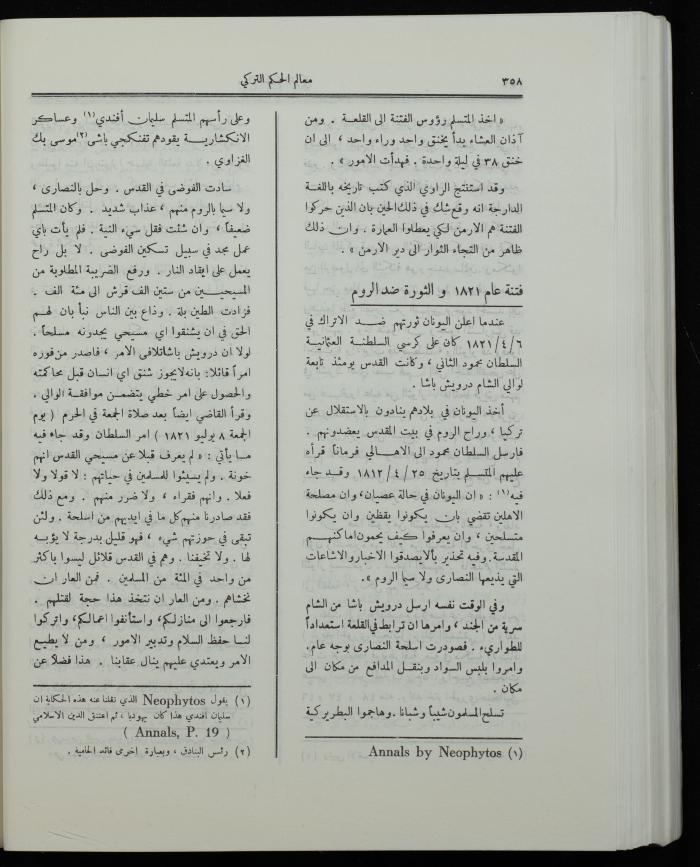 ٣٥٨
معالم الحكم التركي
« اخذ المتسلم رؤوس الفتنة الى القلعة . ومن
آذان العشاء بدأ يخنق واحد وراء واحد ، الى ان
خنق ٣٨ في ليلة واحدة . فهدأت الامور » .
وقد استنتج الراوي الذي كتب تاريخه باللغة
الدارجة انه وقع شك في ذلك الحين بان الذين حركوا
الفتنة هم الارمن لكي يعطلوا العمارة . وان ذلك
ظاهر من التجاء الثوار الى دير الارمن » .
فتنة عام ١٨٢١ و الثورة ضد الروم
عندما اعلن اليونان ثورتهم ضد الاتراك في
٦ / ٤ / ١٨٢١ كان على كرسي السلطنة العثمانية
السلطان محمود الثاني ، وكانت القدس يومئذ تابعة
لوالي الشام درويش باشا .
أخذ اليونان في بلادهم ينادون بالاستقلال عن
تركيا ، وراح الروم في بيت المقدس يعضدونهم .
فارسل السلطان محمود الى الاهالي فرماناً قرأه
عليهم المتسلم بتاريخ ٢٥ / ٤ / ١٨١٢ وقد جاء
فيه(١) : « ان اليونان في حالة عصيان، وان مصلحة
الاهلين تقضي بان يكونوا يقظين وان يكونوا
متسلحين ، وان يعرفوا كيف يحمون اماكنهم
المقدسة. وفيه تحذير بألا يصدقوا الاخبار والاشاعات
التي يذيعها النصارى ولا سيما الروم ».
وفي الوقت نفسه ارسل درويش باشا من الشام
سرية من الجند ، وامرها ان ترابط في القلعة استعداداً
للطواريء . فصودرت اسلحة النصارى بوجه عام.
وامروا بلبس السواد وبنقل المدافع من مكان الى
مكان .
تسلح المسلمون شيباً وشبانا . وهاجموا البطريركية
(١) Annals by Neophytos
وعلى رأسهم المتسلم سليمان أفندي(١) وعساكر
الانكشارية يقودهم تفنكجي باشي(٢) موسى بك
الغزاوي .
سادت الفوضى في القدس . وحل بالنصارى ،
ولا سيما بالروم منهم ، عذاب شديد . وكان المتسلم
ضعيفاً ، وان شئت فقل سيء النية . فلم يأت باي
عمل مجد في سبيل تسكين الفوضى . لا بل راح
يعمل على ايقاد النار . ورفع الضريبة المطلوبة من
المسيحيين من ستين الف قرش الى مئة الف .
فزادت الطين بلة . وذاع بين الناس نبأ بان لهم
الحق في ان يشنقوا اي مسيحي يجدونه مسلحاً .
لولا ان درويش باشا تلافى الامر ، فاصدر من فوره
امراً قائلا: بانه لا يجوز شنق اي انسان قبل محاكمته
والحصول على امر خطي يتضمن موافقة الوالي .
وقرأ القاضي ايضاً بعد صلاة الجمعة في الحرم ( يوم
الجمعة ٨ يوليو ١٨٢١ ) امر السلطان وقد جاء فيه
ما يأتي : « لم يعرف قبلا عن مسيحي القدس انهم
خونة . ولم يسيئوا للمسلمين في حياتهم : لا قولا ولا
فعلا . وانهم فقراء ، ولا ضرر منهم . ومع ذلك
فقد صادرنا منهم كل ما في ايديهم من اسلحة . ولئن
تبقى في حوزتهم شيء ، فهو قليل بدرجة لا يؤبه
لها . ولا تخيفنا . وهم في القدس قلائل ليسوا باكثر
من واحد في المئة من المسلمين . فمن العار ان
نخشاهم . ومن العار ان نتخذ هذا حجة لقتلهم .
فارجعوا الى منازلكم، واستأنفوا اعمالكم، واتركوا
لنا حفظ السلام وتدبير الامور ، ومن لا يطيع
الامر ويعتدي عليهم ينال عقابنا . هذا فضلاً عن
(١) يقول Neophytos الذي نقلنا عنه هذه الحكاية ان
سليمان أفندي هذا كان يهوديا ، ثم اعتنق الدين الاسلامي
( Annals, P. 19 )
(٢) رئس البنادق ، وبعبارة اخرى قائد الحامية .